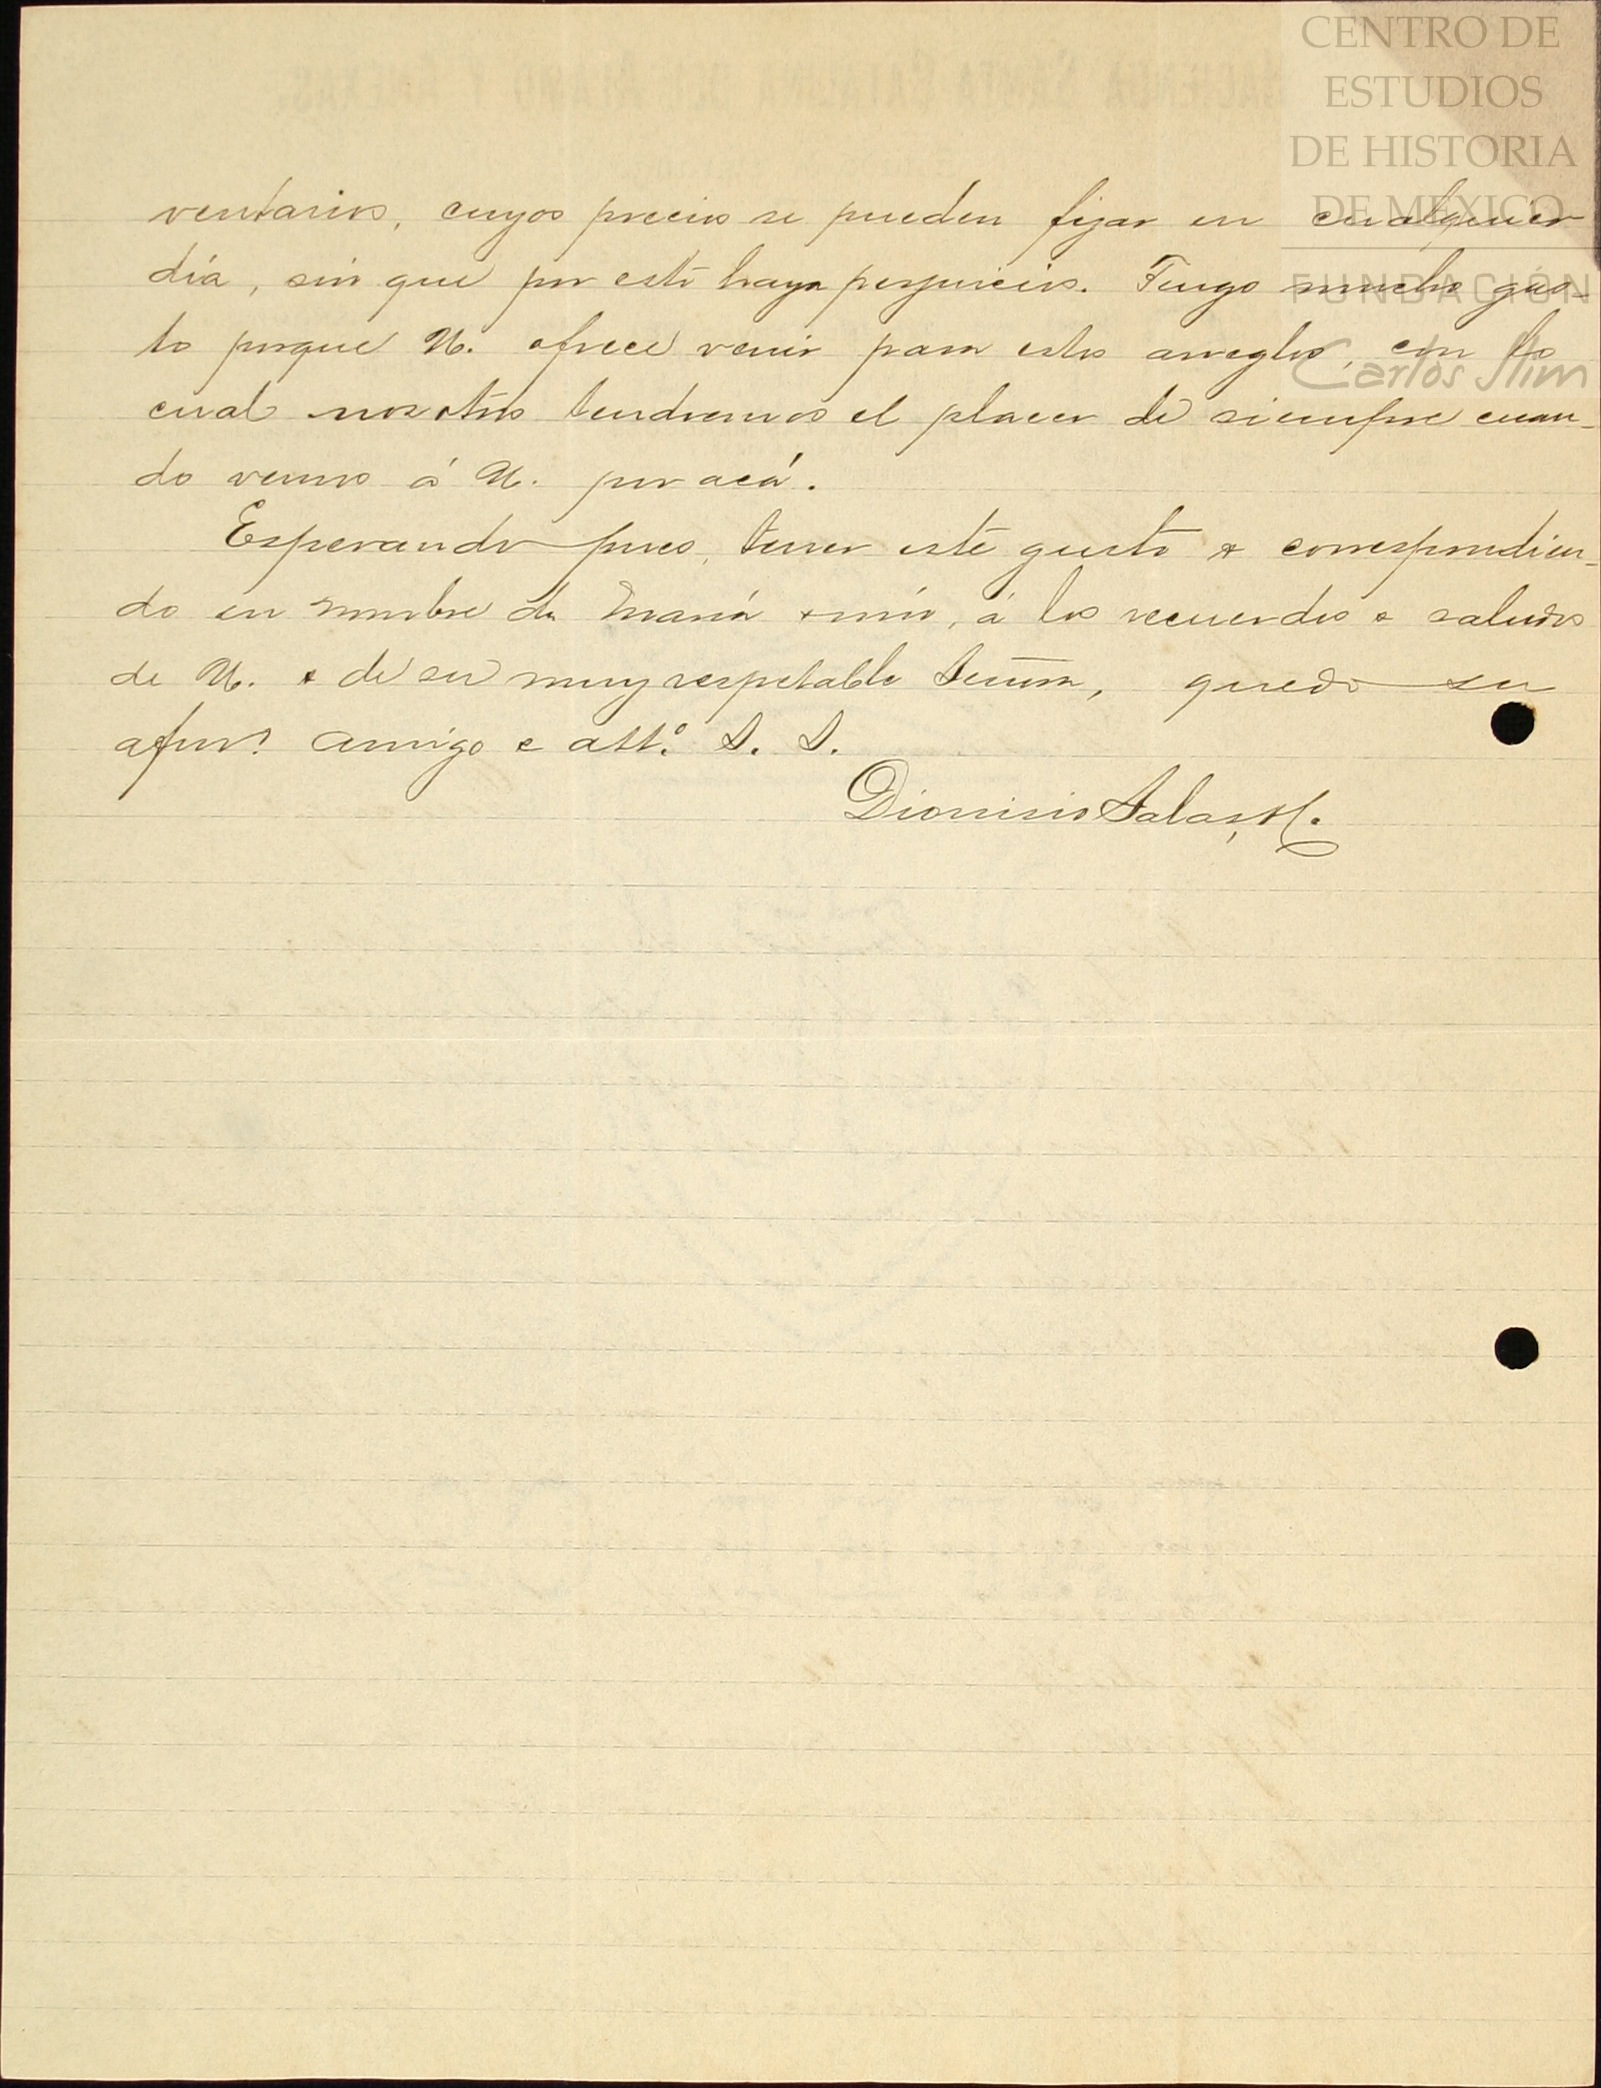 CENTRO DE
ESTUDIOS
DE HISTORIA
DE MÉXICO
FUNDACIÓN
Carlos Slim
ventarios, cuyos precios se pueden fijar en cualquier
día, sin que por esto haya perjuicios. Tengo mucho gus-
to porque U. ofrece venir para estos arreglos, con lo
cual nosotros tendremos el placer de siempre cuan-
do vemos á U. por acá.
Esperando pues, tener este gusto y correspondien-
do en nombre de María y mío, á los recuerdos e saludos
de U. y de su muy respetable Señora, quedo su
afmo. amigo e atto. S. S.
Dionisio Salas, H.